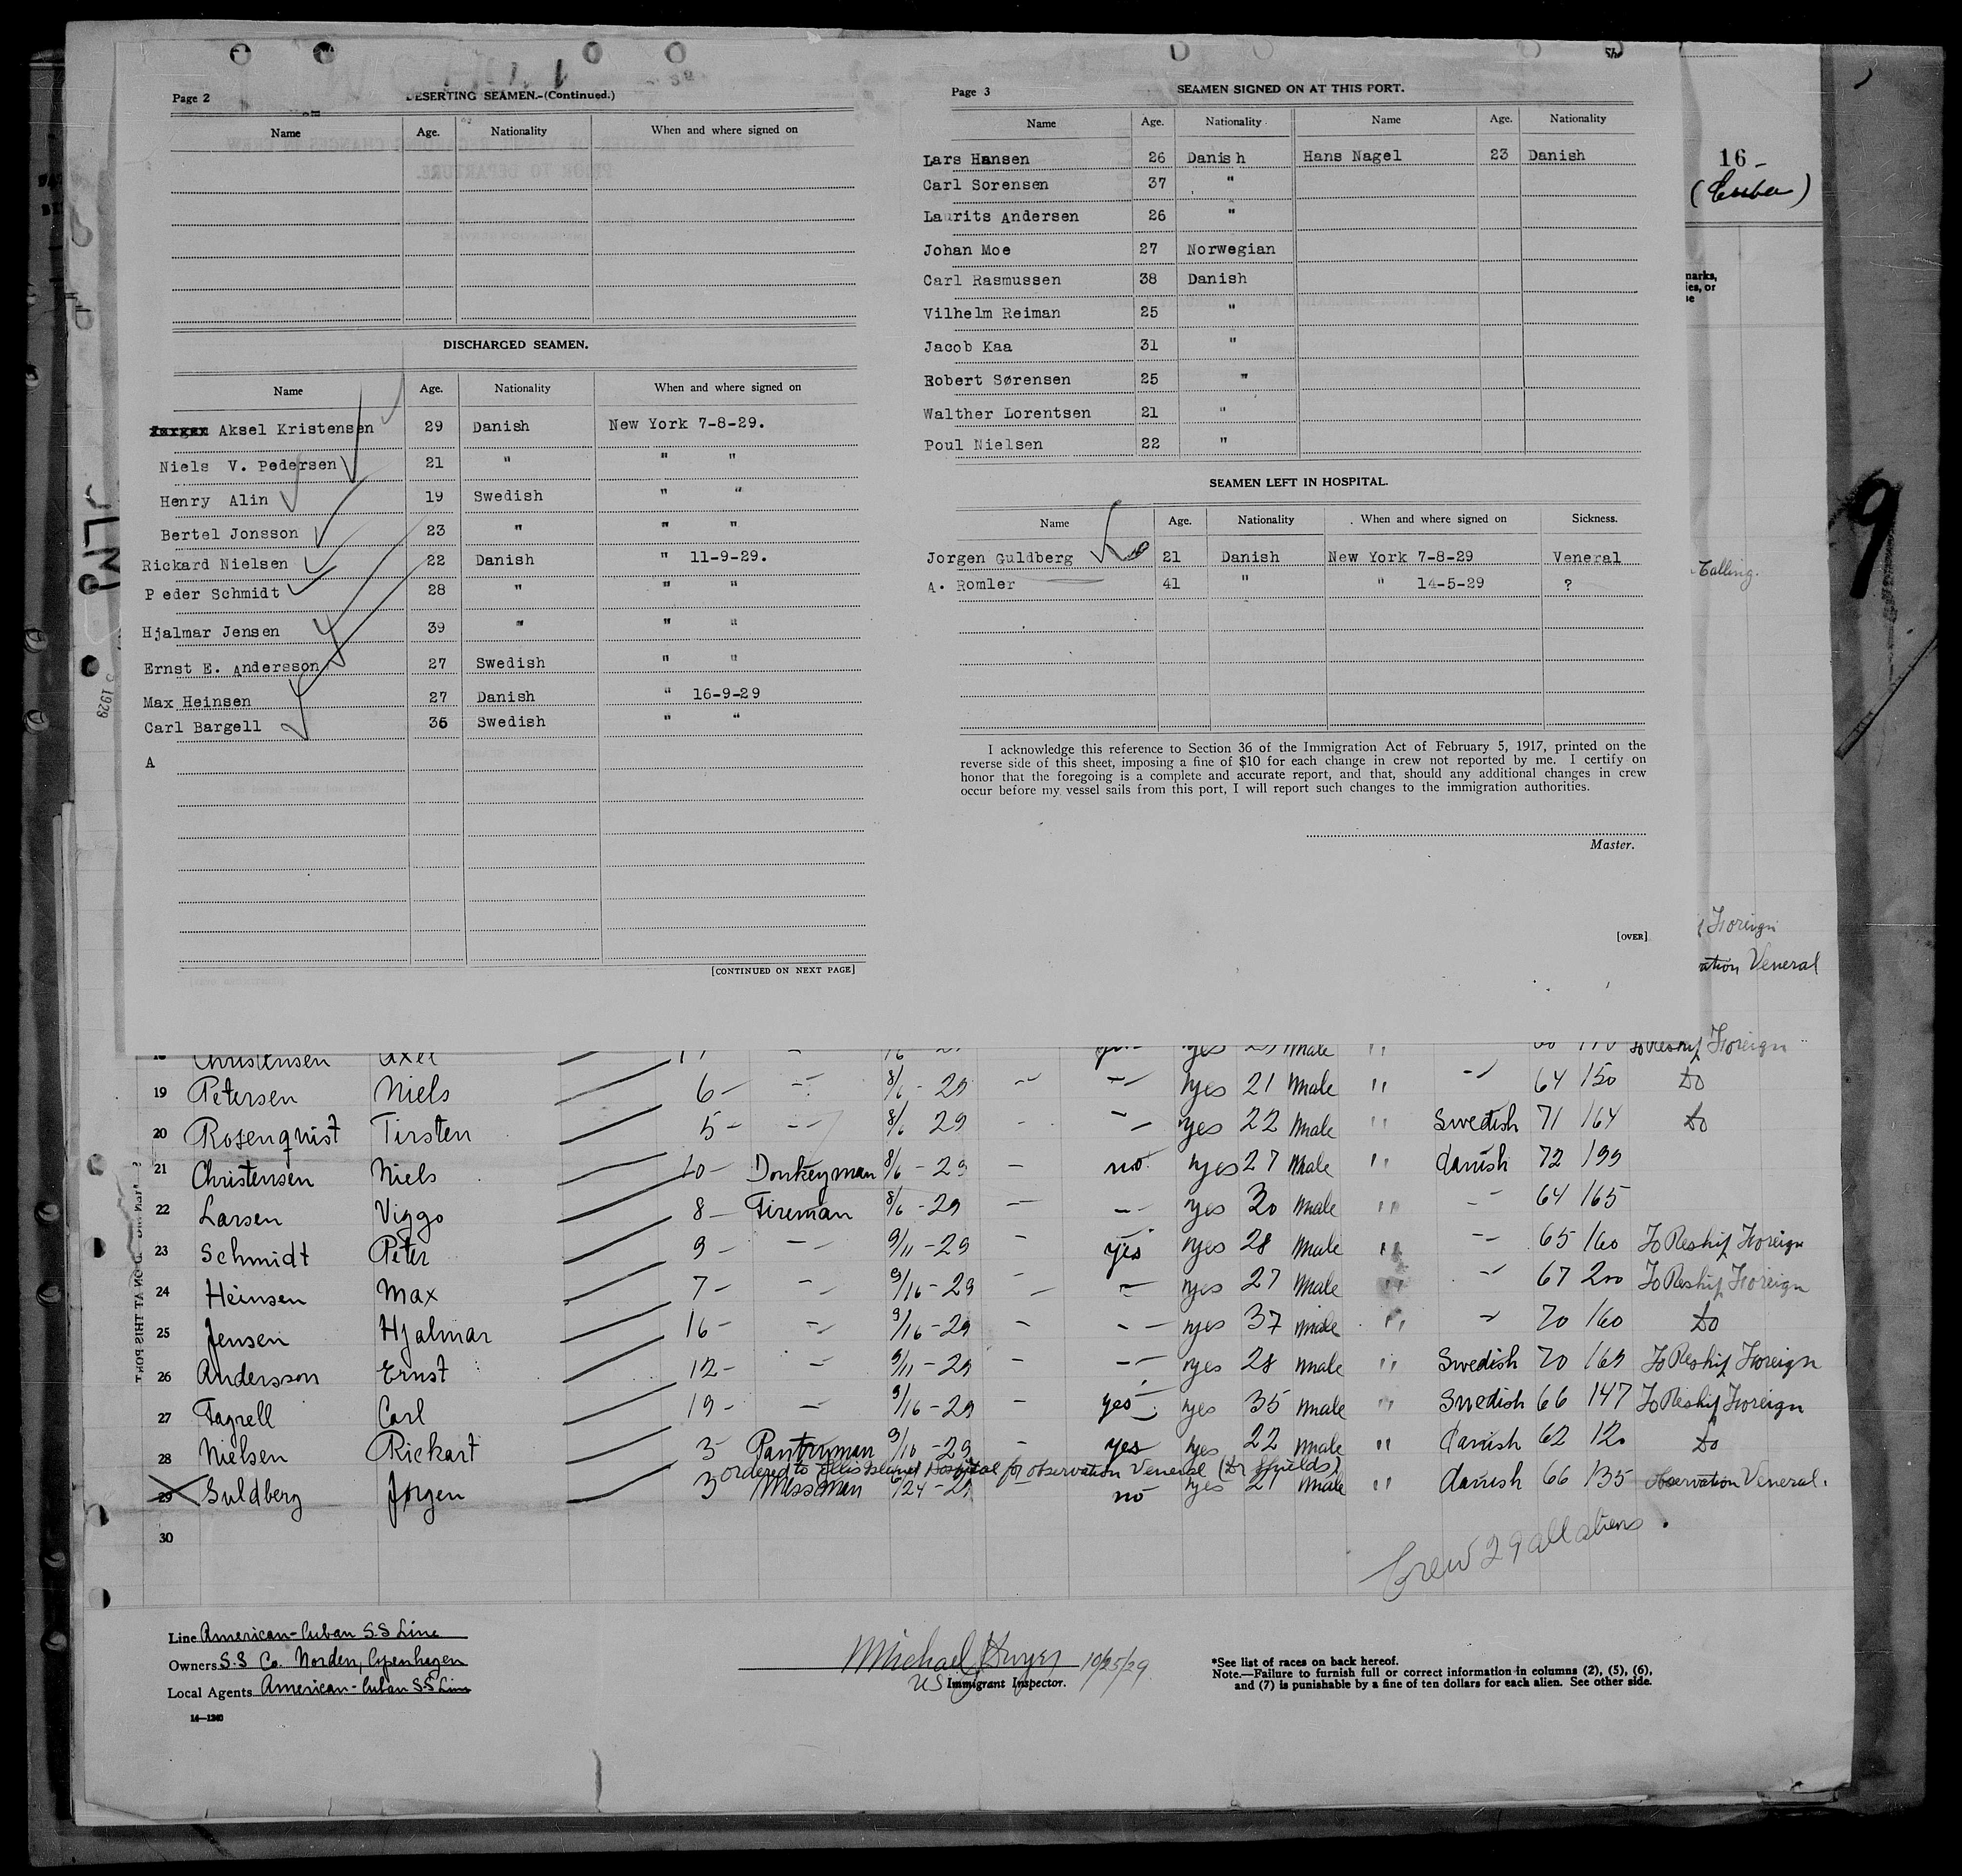 Page 2
DESERTING SEAMEN.-(Continued.)
Name Age. Nationality When and where signed on
DISCHARGED SEAMEN.
Name Age. Nationality When and where signed on
Aksel Kristensen 29 Danish New York 7-8-29.
Niels V. Pedersen 21 " " "
Henry Alin 19 Swedish " "
Bertel Jonsson 23 " " "
Rickard Nielsen 22 Danish " 11-9-29.
P eder Schmidt 28 " " "
Hjalmar Jensen 39 " " "
Ernst E. Andersson 27 Swedish " "
Max Heinsen 27 Danish " 16-9-29
Carl Bargell 36 Swedish " "
A
[CONTINUED ON NEXT PAGE]
Page 3
SEAMEN SIGNED ON AT THIS PORT.
Name Age. Nationality Name Age. Nationality
Lars Hansen 26 Danish Hans Nagel 23 Danish
Carl Sorensen 37 "
Laurits Andersen 26 "
Johan Moe 27 Norwegian
Carl Rasmussen 38 Danish
Vilhelm Reiman 25 "
Jacob Kaa 31 "
Robert Sørensen 25 "
Walther Lorentsen 21 "
Poul Nielsen 22 "
SEAMEN LEFT IN HOSPITAL.
Name Age. Nationality When and where signed on Sickness.
Jorgen Guldberg 21 Danish New York 7-8-29 Veneral
A. Romler 41 " " 14-5-29 ?
I acknowledge this reference to Section 36 of the Immigration Act of February 5, 1917, printed on the
reverse side of this sheet, imposing a fine of $10 for each change in crew not reported by me. I certify on
honor that the foregoing is a complete and accurate report, and that, should any additional changes in crew
occur before my vessel sails from this port, I will report such changes to the immigration authorities.
Master.
[OVER]
16-
(Cuba)
Foreign
Veneral
9
Christensen Axel yes Male " To Reship Foreign
19 Petersen Niels 6 - - 8/6 - 29 - - yes 21 Male " - 64 150 Do
20 Rosenquist Tirsten 5 - - 8/6 29 - - yes 22 Male " Swedish 71 164 Do
21 Christensen Niels 10 - Donkeyman 8/6 - 29 - no yes 27 Male " danish 72 199
22 Larsen Viggo 8 - Fireman 8/6 - 29 - - yes 30 Male " - 64 165
23 Schmidt Peter 9 - - 9/11 - 29 - yes yes 28 Male " - 65 160 To Reship Foreign
24 Heinsen Max 7 - - 9/16 - 29 - - yes 27 Male " - 67 200 To Reship Foreign
25 Jensen Hjalmar 16 - - 9/16 - 29 - - yes 37 Male " - 70 160 Do
26 Andersson Ernst 12 - - 9/11 - 29 - - yes 28 Male " Swedish 70 169 To Reship Foreign
27 Fagrell Carl 19 - - 9/16 - 29 - yes yes 35 Male " Swedish 66 147 To Reship Foreign
28 Nielsen Rickart 3 Pantryman 9/10 - 29 - yes yes 22 Male " danish 62 120 Do
ordered to Ellis Island Hospital for observation Veneral (Dr Shields)
29 Guldberg Jørgen 3 Messman 9/24 - 29 no yes 21 Male " danish 66 135 observation Veneral.
30
Crew 29 all aliens.
Line American-Cuban S.S Line
Owners S.S Co. Norden, Copenhagen
Local Agents American-Cuban S.S Line
14—1240
Michael Dwyer 10/25/29
US Immigrant Inspector.
*See list of races on back hereof.
Note.—Failure to furnish full or correct information in columns (2), (5), (6),
and (7) is punishable by a fine of ten dollars for each alien. See other side.